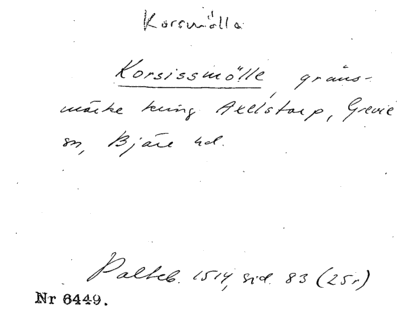 Korsmölla
Korsissmölle, gräns-
märke kring Axelstorp, Grevie
sn, Bjäre hd.
Palteb. 1514, sid. 83 (25r)
Nr 6449.